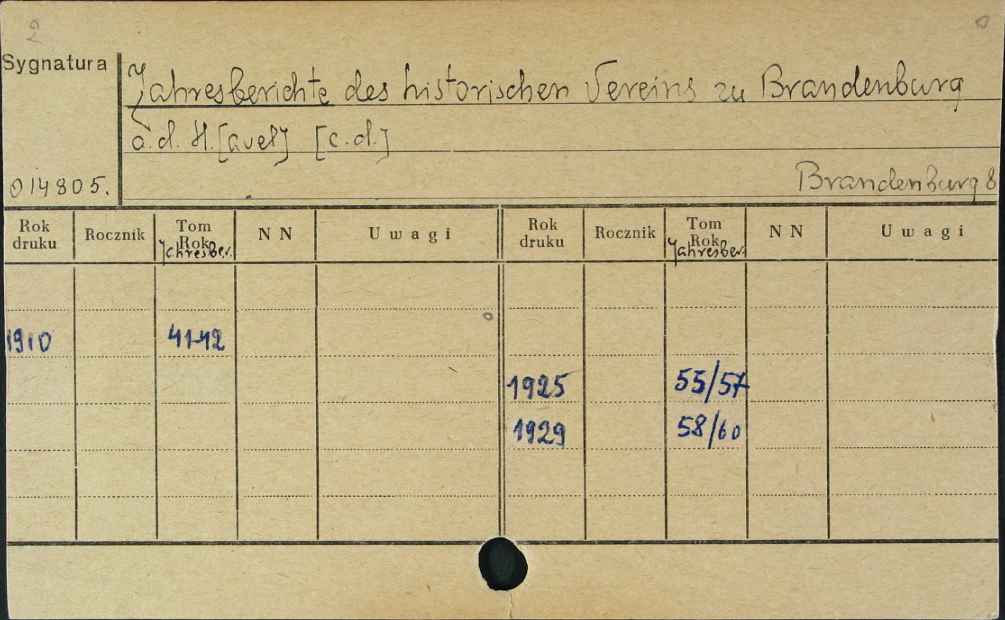 2
Sygnatura
Jahresberichte des historischen Vereins zu Brandenburg
a.d. H.[avel] [c.d.]
014805.
Brandenburg 8
Rok druku Rocznik Tom Rok Jahresber. NN Uwagi Rok druku Rocznik Tom Rok Jahresber. NN Uwagi
1910 41-42
1925 55/57
1929 58/60